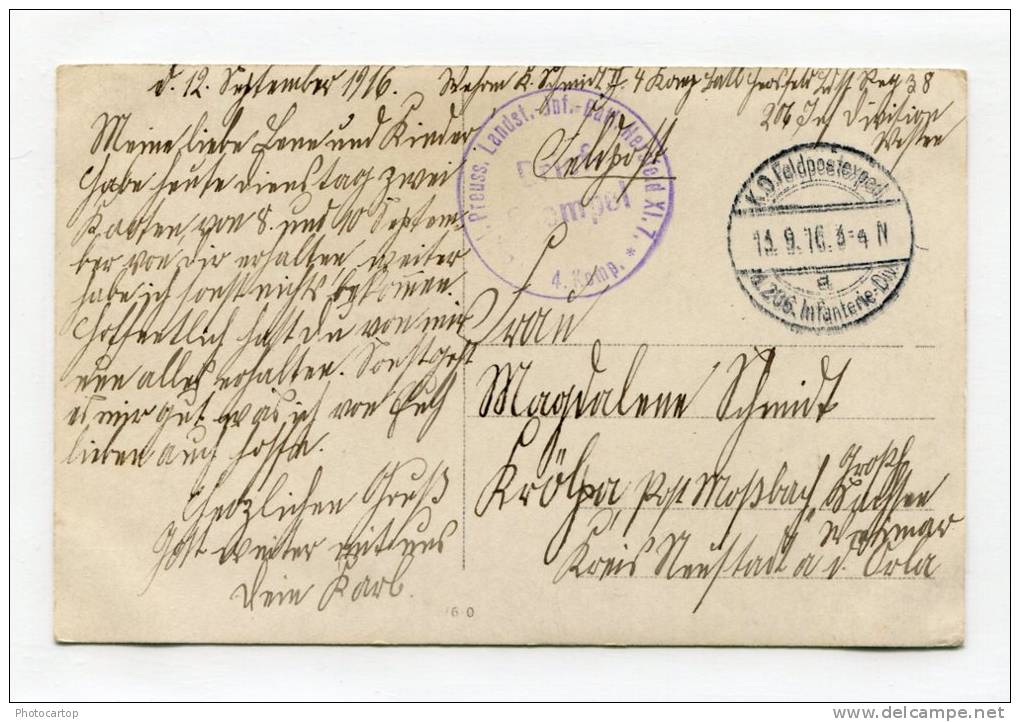 d. 12. September 1916. Wehrm K. Schmidt II. 4 Komp Batl Hersfeld Ldst Reg 38
206 Inf Division
Westen
Feldpost
Meine liebe Lene und Kinder
Habe heute Dienstag zwei
Karten von 8. und 10 Septem-
ber von Dir erhalten weiter
habe ich sonst nichts bekommen.
Hoffentlich hast Du von mir
nun alles erhalten. Sonst geht
es mir gut was ich von Euch
lieben auch hoffe.
Herzlichen Gruß
Gott weiter mit uns
Dein Karl.
Frau
Magdalene Schmidt
Krölpa, Post Moßbach, Großh
Sachsen
Weimar
Kreis Neustadt a d. Orla
Preuss. Landst.-Inf.-Batl. Hersfeld XI. 7. *
4. Komp.
K.D. Feldpostexped.
13. 9. 16. 3-4 N
a
d. 206. Infanterie-Div.
Photocartop
www.delcampe.net